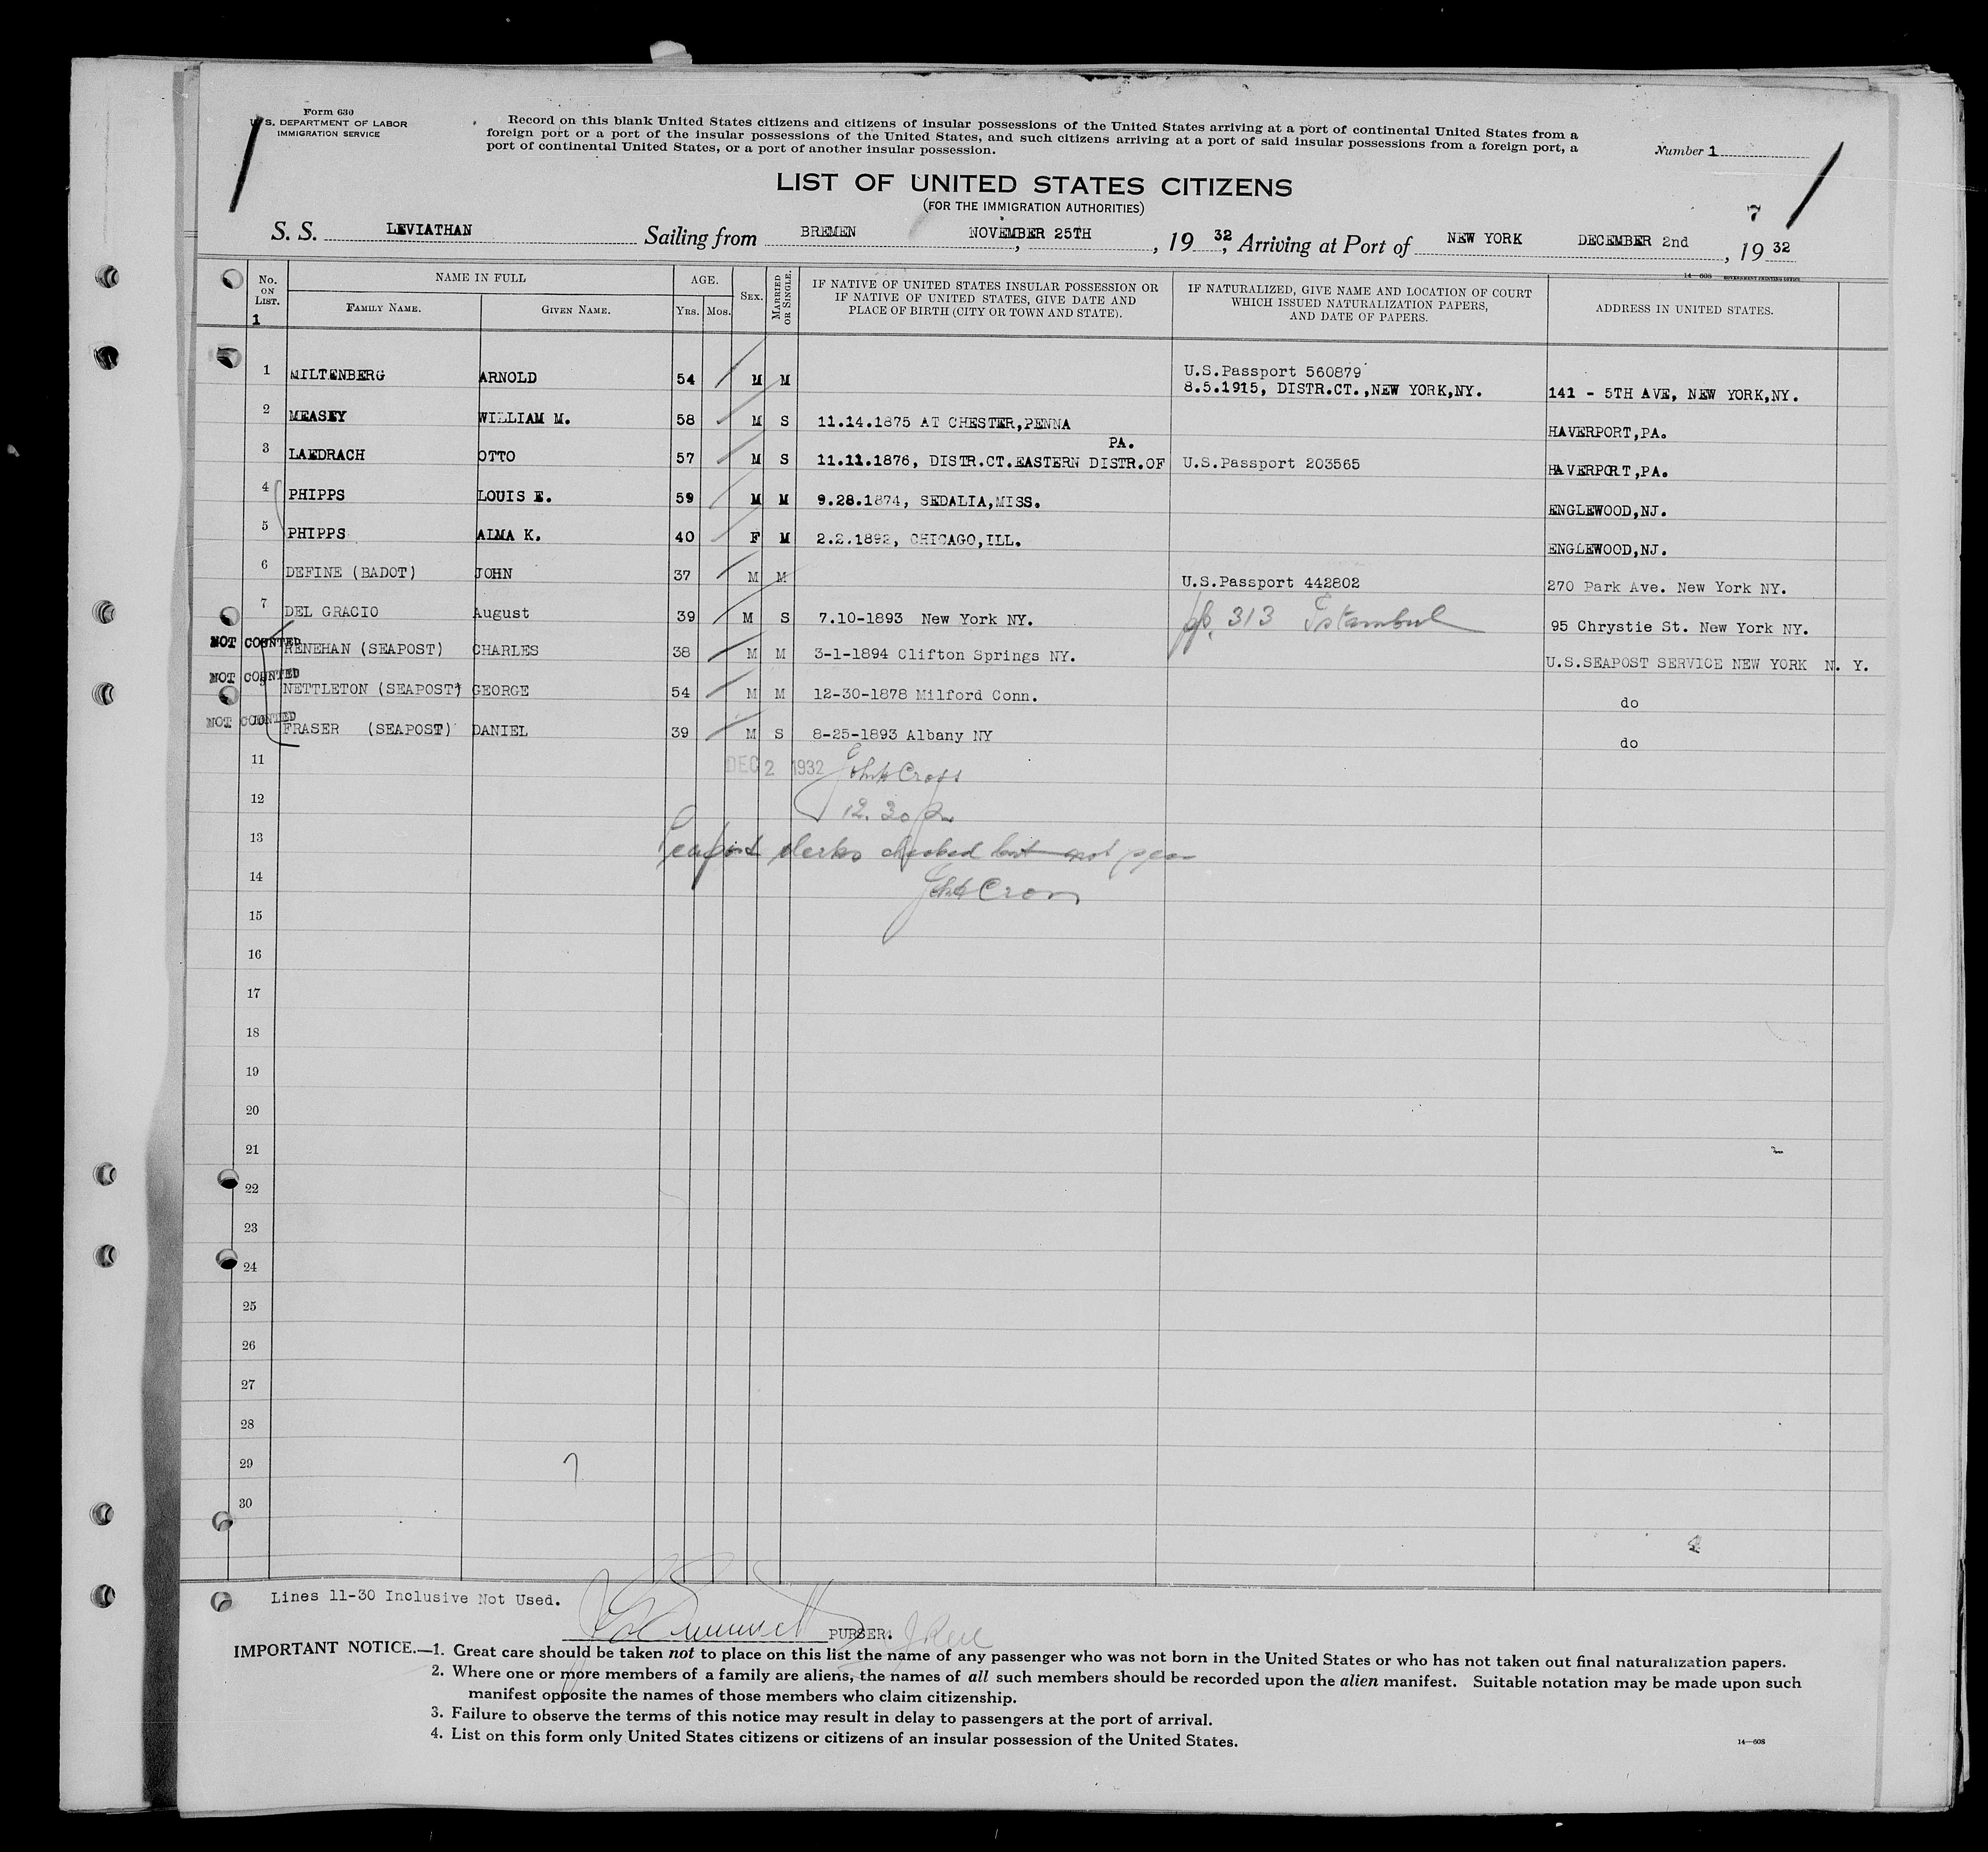 Form 630
U. S. DEPARTMENT OF LABOR
IMMIGRATION SERVICE
Record on this blank United States citizens and citizens of insular possessions of the United States arriving at a port of continental United States from a
foreign port or a port of the insular possessions of the United States, and such citizens arriving at a port of said insular possessions from a foreign port, a
port of continental United States, or a port of another insular possession.
Number 1
LIST OF UNITED STATES CITIZENS
(FOR THE IMMIGRATION AUTHORITIES)
7
S. S. LEVIATHAN Sailing from BREMEN, NOVEMBER 25TH, 19 32, Arriving at Port of NEW YORK DECEMBER 2nd, 19 32
14—608 GOVERNMENT PRINTING OFFICE
No. ON LIST. NAME IN FULL AGE. SEX. MARRIED OR SINGLE. IF NATIVE OF UNITED STATES INSULAR POSSESSION OR IF NATIVE OF UNITED STATES, GIVE DATE AND PLACE OF BIRTH (CITY OR TOWN AND STATE). IF NATURALIZED, GIVE NAME AND LOCATION OF COURT WHICH ISSUED NATURALIZATION PAPERS, AND DATE OF PAPERS. ADDRESS IN UNITED STATES.
1 FAMILY NAME. GIVEN NAME. YRS. MOS.
1 MILTENBERG ARNOLD 54 M M U.S.Passport 560879 8.5.1915, DISTR.CT.,NEW YORK,NY. 141 - 5TH AVE, NEW YORK,NY.
2 MEASEY WILLIAM M. 58 M S 11.14.1875 AT CHESTER,PENNA HAVERPORT,PA.
PA.
3 LAEDRACH OTTO 57 M S 11.11.1876, DISTR.CT.EASTERN DISTR.OF U.S.Passport 203565 HAVERPORT,PA.
4 PHIPPS LOUIS E. 59 M M 9.28.1874, SEDALIA,MISS. ENGLEWOOD,NJ.
5 PHIPPS ALMA K. 40 F M 2.2.1892, CHICAGO,ILL. ENGLEWOOD,NJ.
6 DEFINE (BADOT) JOHN 37 M M U.S.Passport 442802 270 Park Ave. New York NY.
7 DEL GRACIO August 39 M S 7.10-1893 New York NY. 313 Istambul 95 Chrystie St. New York NY.
NOT COUNTED RENEHAN (SEAPOST) CHARLES 38 M M 3-1-1894 Clifton Springs NY. U.S.SEAPOST SERVICE NEW YORK N. Y.
NOT COUNTED NETTLETON (SEAPOST) GEORGE 54 M M 12-30-1878 Milford Conn. do
NOT COUNTED FRASER (SEAPOST) DANIEL 39 M S 8-25-1893 Albany NY do
11 DEC 2 1932 Cross
12 12.30
13 clerks checked but not
14 Cross
15
16
17
18
19
20
21
22
23
24
25
26
27
28
29
30
Lines 11-30 Inclusive Not Used.
PURSER.
IMPORTANT NOTICE.—1. Great care should be taken not to place on this list the name of any passenger who was not born in the United States or who has not taken out final naturalization papers.
2. Where one or more members of a family are aliens, the names of all such members should be recorded upon the alien manifest. Suitable notation may be made upon such
manifest opposite the names of those members who claim citizenship.
3. Failure to observe the terms of this notice may result in delay to passengers at the port of arrival.
4. List on this form only United States citizens or citizens of an insular possession of the United States.
14—608